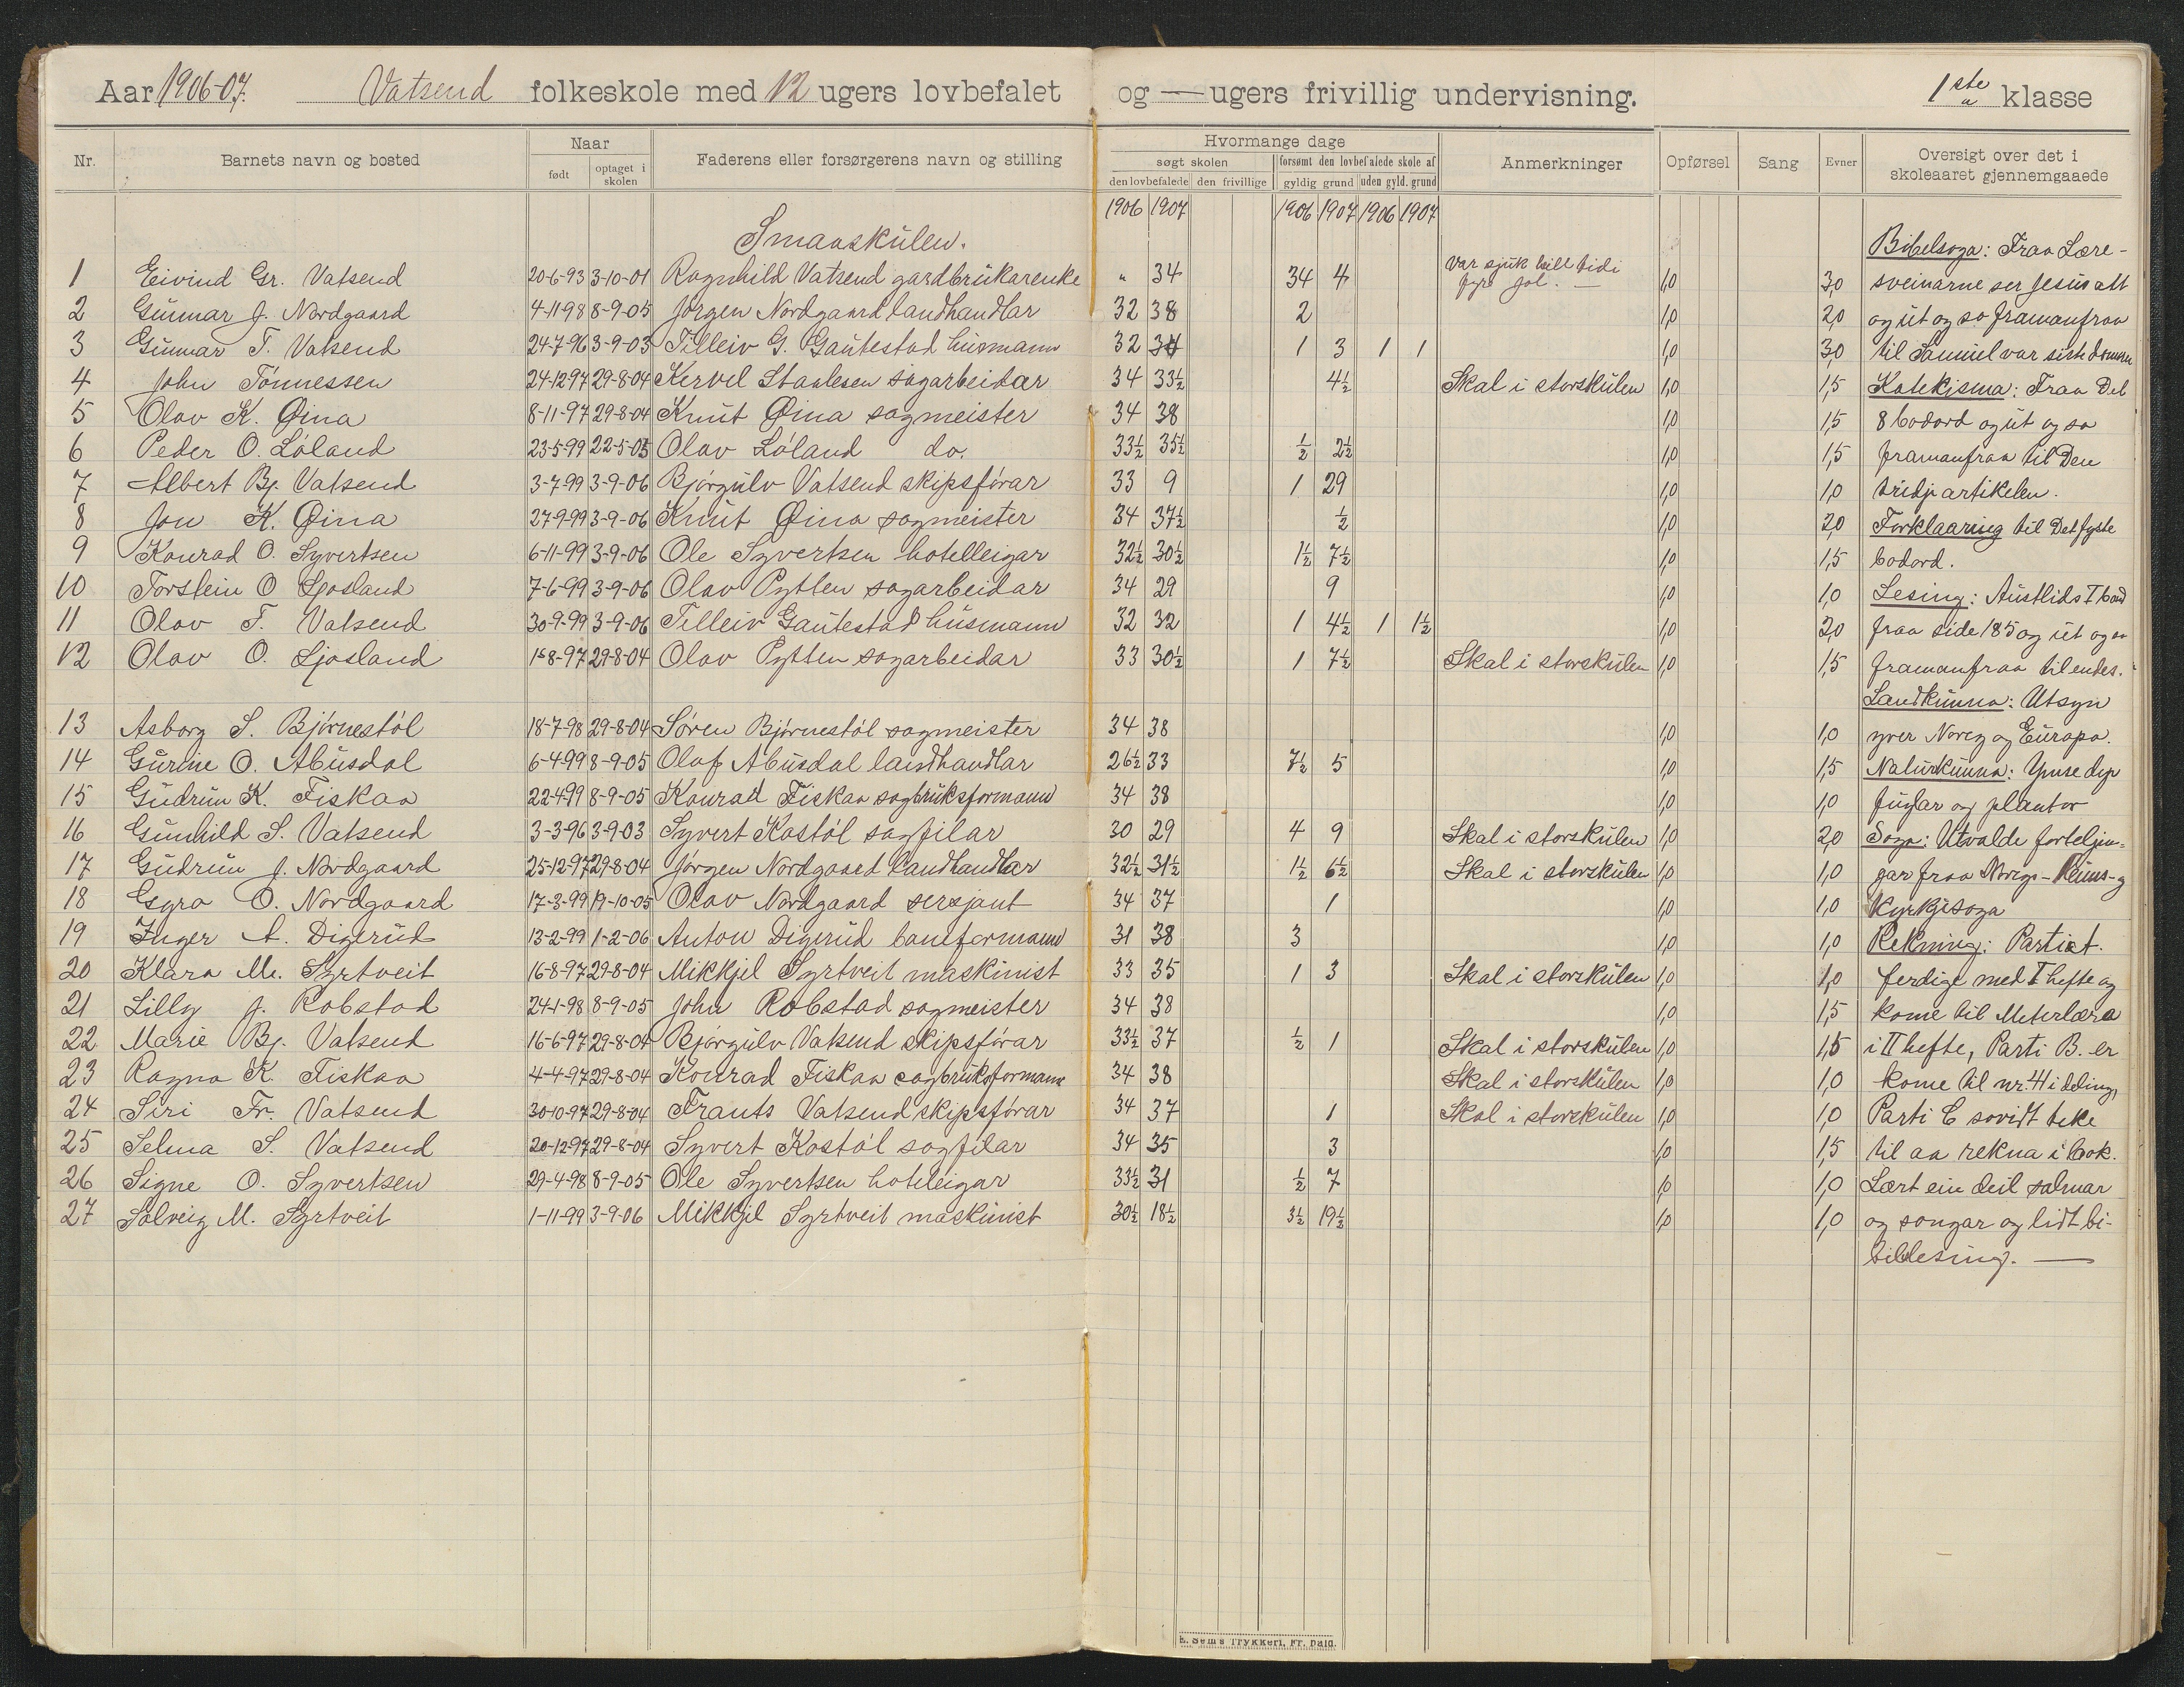 Aar 1906-07. Vatsend folkeskole med 12 ugers lovbefalet og — ugers frivillig undervisning. 1ste a klasse
Nr. Barnets navn og bosted Naar født optaget i skolen Faderens eller forsørgerens navn og stilling Hvormange dage søgt skolen den lovbefalede den frivillige forsømt den lovbefalede skole af gyldig grund uden gyld. grund Anmerkninger Opførsel Sang Evner Oversigt over det i skoleaaret gjennemgaaede
1906 1907 1906 1907 1906 1907
Smaaskulen. Bibelsoga: Fraa Lære-
1 Eivind Gr. Vatsend 20-6-93 3-10-01 Ragnhild Vatsend gardbrukarenke " 34 34 4 Var sjuk till tidi fyre jol. — 1,0 3,0 sveinarne ser Jesus att
2 Gunnar J. Nordgaard 4-11-98 8-9-05 Jørgen Nordgaard landhandlar 32 38 2 1,0 2,0 og ut og so framanfraa
3 Gunnar T. Vatsend 24-7-96 3-9-03 Tilleiv G. Gautestad husmann 32 34 1 3 1 1 1,0 3,0 til Samuel var siste domaren
4 John Tønnessen 24-12-97 29-8-04 Kervel Staalesen sagarbeidar 34 33½ 4½ Skal i storskulen 1,0 1,5 Katekisma: Fraa Det
5 Olav K. Øina 8-11-97 29-8-04 Knut Øina sagmeister 34 38 1,0 1,5 8 bodord og ut og so
6 Peder O. Løland 23-5-99 22-5-05 Olav Løland do. 33½ 35½ ½ 2½ 1,0 1,5 framanfraa til Den
7 Albert Bj. Vatsend 3-7-99 3-9-06 Bjørgulv Vatsend skipsførar 33 9 1 29 1,0 1,0 tridje artikelen.
8 Jon K. Øina 27-9-99 3-9-06 Knut Øina sagmeister 34 37½ ½ 1,0 2,0 Forklaaring til Det fyste
9 Konrad O. Syvertsen 6-11-99 3-9-06 Ole Syvertsen hotelleigar 32½ 30½ 1½ 7½ 1,0 1,5 bodord.
10 Torstein O Ljosland 7-6-99 3-9-06 Olav Pytten sagarbeidar 34 29 9 1,0 1,0 Lesing: Austlids I band
11 Olav T. Vatsend 30-9-99 3-9-06 Tilleiv Gautestad husmann 32 32 1 4½ 1 1½ 1,0 2,0 fraa side 185 og ut og so
12 Olav O. Ljosland 1-8-97 29-8-04 Olav Pytten sagarbeidar 33 30½ 1 7½ Skal i storskulen 1,0 1,5 framanfraa til endes.
Landkunna: Utsyn
13 Asborg S. Bjørnestøl 18-7-98 29-8-04 Søren Bjørnestøl sagmeister 34 38 1,0 1,0 yver Noreg og Europa.
14 Gurine O. Abusdal 6-4-99 8-9-05 Olaf Abusdal landhandlar 26½ 33 7½ 5 1,0 1,5 Naturkunna: Ymse dyr
15 Gudrun K. Fiskaa 22-4-99 8-9-05 Konrad Fiskaa sagbruksformann 34 38 1,0 1,0 fuglar og plantor
16 Gunhild S. Vatsend 3-3-96 3-9-03 Syvert Kostøl sagfilar 30 29 4 9 Skal i storskulen 1,0 2,0 Soga: Utvalde forteljin-
17 Gudrun J. Nordgaard 25-12-97 29-8-04 Jørgen Nordgaard landhandlar 32½ 31½ 1½ 6½ Skal i storskulen 1,0 1,0 gar fraa Noregs- Heims- og
18 Gyro O. Nordgaard 17-3-99 19-10-05 Olav Nordgaard sersjant 34 37 1 1,0 1,0 Kyrkjesoga
19 Inger A. Digerud 13-2-99 1-2-06 Anton Digerud baneformann 31 38 3 1,0 1,0 Rekning: Parti A.
20 Klara M. Syrtveit 16-8-97 29-8-04 Mikkjel Syrtveit maskinist 33 35 1 3 Skal i storskulen 1,0 1,0 ferdige med I hefte og
21 Lilly J. Robstad 24-1-98 8-9-05 John Robstad sagmeister 34 38 1,0 1,5 kome til Meterlæra
22 Marie Bj. Vatsend 16-6-97 29-8-04 Bjørgulv Vatsend skipsførar 33½ 37 ½ 1 Skal i storskulen 1,0 1,5 i II hefte, Parti B. er
23 Ragna K. Fiskaa 4-4-97 29-8-04 Konrad Fiskaa sagbruksformann 34 38 Skal i storskulen 1,0 1,0 kome til nr. 4 i deling,
24 Siri Fr. Vatsend 30-10-97 29-8-04 Frants Vatsend skipsførar 34 37 1 Skal i storskulen 1,0 1,0 Parti C sovidt teke
25 Selma S. Vatsend 20-12-97 29-8-04 Syvert Kostøl sagfilar 34 35 3 1,0 1,5 til aa rekna i bok.
26 Signe O. Syvertsen 29-4-98 8-9-05 Ole Syvertsen hoteleigar 33½ 31 ½ 7 1,0 1,0 Lært ein deil salmar
27 Solveig M. Syrtveit 1-11-99 3-9-06 Mikkjel Syrtveit maskinist 30½ 18½ 3½ 19½ 1,0 1,0 og songar og lidt bi-
billesing. —
E. Sem's Trykkeri, Fr. hald.